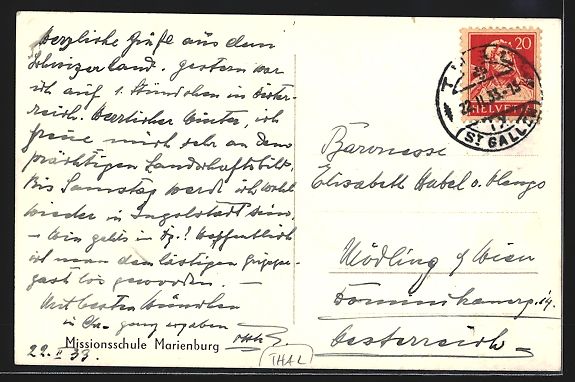 Herzliche Grüße aus dem
Schweizerland. Gestern war
ich auf 1 Stündchen in Öster-
reich. Herrlicher Winter, ich
freue mich sehr an dem
prächtigen Landschaftsbild.
Bis Samstag werde ich wohl
wieder in Ingolstadt sein.
– Wie geht's in ? Hoffentlich
ist man den lästigen Grippe-
gast los geworden. –
Mit besten Wünschen
in ganz ergeben
Missionsschule Marienburg
22.II.33.
(THAL)
20
HELVETIA
THAL
22.II.33
(ST GALLEN)
Baronesse
Elisabeth Habel v.
Mödling b/ Wien
Dominikanerg.
Oesterreich